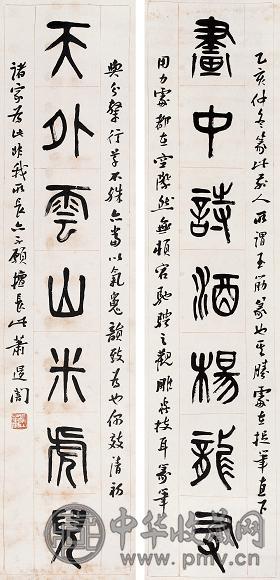 畫中詩酒楊龍友
乙亥仲冬篆此前人所謂玉筋篆也其勝處在提筆直下
用力處都在空際然無頓宕馳騁之觀雖技耳篆筆
天外雲山米虎兒
與分隸行草不殊亦當以氣韻致為效清初
諸家若此非我所長亦不願擅長此蕭退闇
中华收藏网
www.pmv.cn